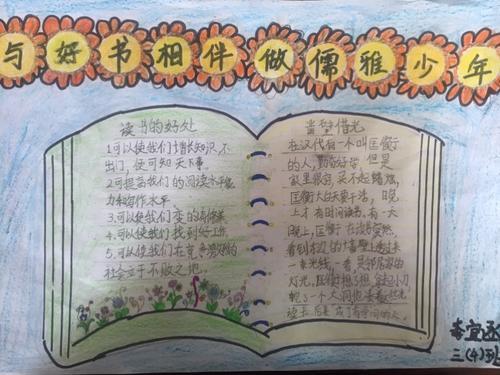 与好书相伴做儒雅少年
读书的好处
1.可以使我们增长知识,不
出门,便可知天下事.
2.可提高我们的阅读水平能
力和写作水平.
3.可以使我们变的高修养
4.可以使我们找到好工作
5.可以使我们在竞争激烈的
社会立于不败之地.
凿壁借光
在汉代有一个叫匡衡
的人,勤奋好学,但是
家里很穷,买不起蜡烛,
匡衡大白天要干活,晚
上才有时间读书,有一天
晚上,匡衡在读书突然,
看到东边的墙壁上透过来
一条光线,一看,是邻居家的
灯光,匡衡想了想,拿起小刀
挖了一个大洞他 着光
读书 后来 成了有学问的人.
李宜
三(4)班